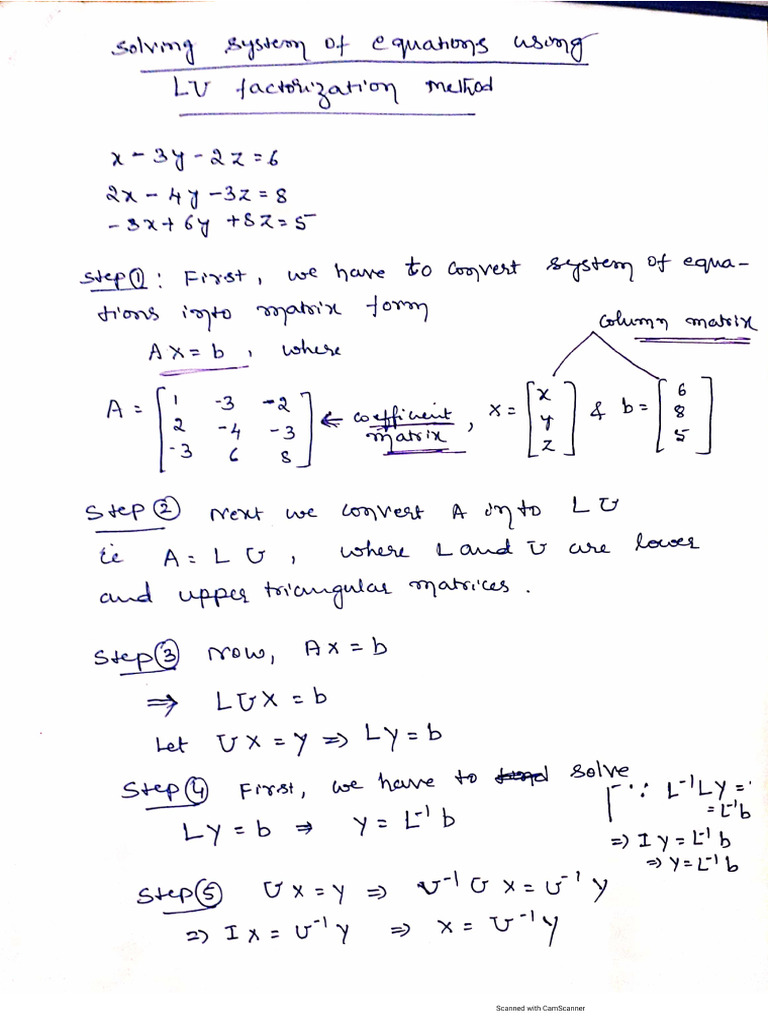 Solving system of equations using
LU factorization method
x - 3y - 2z = 6
2x - 4y - 3z = 8
-3x + 6y + 8z = 5
Step ① : First, we have to convert system of equa-
tions into matrix form
Column matrix
AX = b , where
A = [1 -3 -2
2 -4 -3
-3 6 8] ← coefficient matrix , X = [x y z] & b = [6 8 5]
Step ② Next we convert A into LU
ie A = LU , where L and U are lower
and upper triangular matrices .
Step ③ Now, AX = b
⇒ LUX = b
Let UX = y ⇒ Ly = b
Step ④ First, we have to solve
Ly = b ⇒ y = L⁻¹ b
∵ L⁻¹Ly =
= L⁻¹b
⇒ I y = L⁻¹ b
⇒ y = L⁻¹ b
Step ⑤ UX = y ⇒ U⁻¹ U X = U⁻¹ y
⇒ I X = U⁻¹ y ⇒ X = U⁻¹ y
Scanned with CamScanner